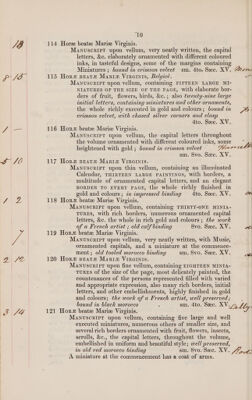 10
18 114 Horæ beatæ Mariæ Virginis.
Manuscript upon vellum, very neatly written, the capital
letters, &c. elaborately ornamented with different coloured
inks, in tasteful designs, some of the margins containing
Miniatures; bound in crimson velvet sm. 4to. Sæc. XV.
8 15 115 Horæ beatæ Mariæ Virginis, Belgicè.
Manuscript upon vellum, containing fifteen large mi-
niatures of the size of the page, with elaborate bor-
ders of fruit, flowers, birds, &c.; also twenty-nine large
initial letters, containing miniatures and other ornaments,
the whole richly executed in gold and colours; bound in
crimson velvet, with chased silver corners and clasp
4to. Sæc. XV.
1 — 116 Horæ beatæ Mariæ Virginis.
Manuscript upon vellum, the capital letters throughout
the volume ornamented with different coloured inks, some
heightened with gold; bound in crimson velvet
sm. 8vo. Sæc. XV.
5 10 117 Horæ beatæ Mariæ Virginis.
Manuscript upon thin vellum, containing an illustrated
Calendar, thirteen large paintings, with borders, a
multitude of ornamented capital letters, and an elegant
border to every page, the whole richly finished in
gold and colours; in impressed binding 4to. Sæc. XV.
1 2 118 Horæ beatæ Mariæ Virginis.
Manuscript upon vellum, containing thirty-one minia-
tures, with rich borders, numerous ornamented capital
letters, &c. the whole in rich gold and colours; the work
of a French artist; old calf binding 8vo. Sæc. XV.
1 7 119 Horæ beatæ Mariæ Virginis.
Manuscript upon vellum, very neatly written, with Music,
ornamented capitals, and a miniature at the commence-
ment; old tooled morocco binding sm. 8vo. Sæc. XV.
2 12 120 Horæ beatæ Mariæ Virginis.
Manuscript upon fine vellum, containing eighteen minia-
tures of the size of the page, most delicately painted, the
countenances of the persons represented filled with varied
and appropriate expression, also many rich borders, initial
letters, and other embellishments, highly finished in gold
and colours; the work of a French artist, well preserved;
bound in black morocco sm. 4to. Sæc. XV.
3 14 121 Horæ beatæ Mariæ Virginis.
Manuscript upon vellum, containing five large and well
executed miniatures, numerous others of smaller size, and
several rich borders ornamented with fruit, flowers, insects,
scrolls, &c., the capital letters, throughout the volume,
embellished in uniform and beautiful style; well preserved,
in old red morocco binding sm. 8vo. Sæc. XV.
A miniature at the commencement has a coat of arms.